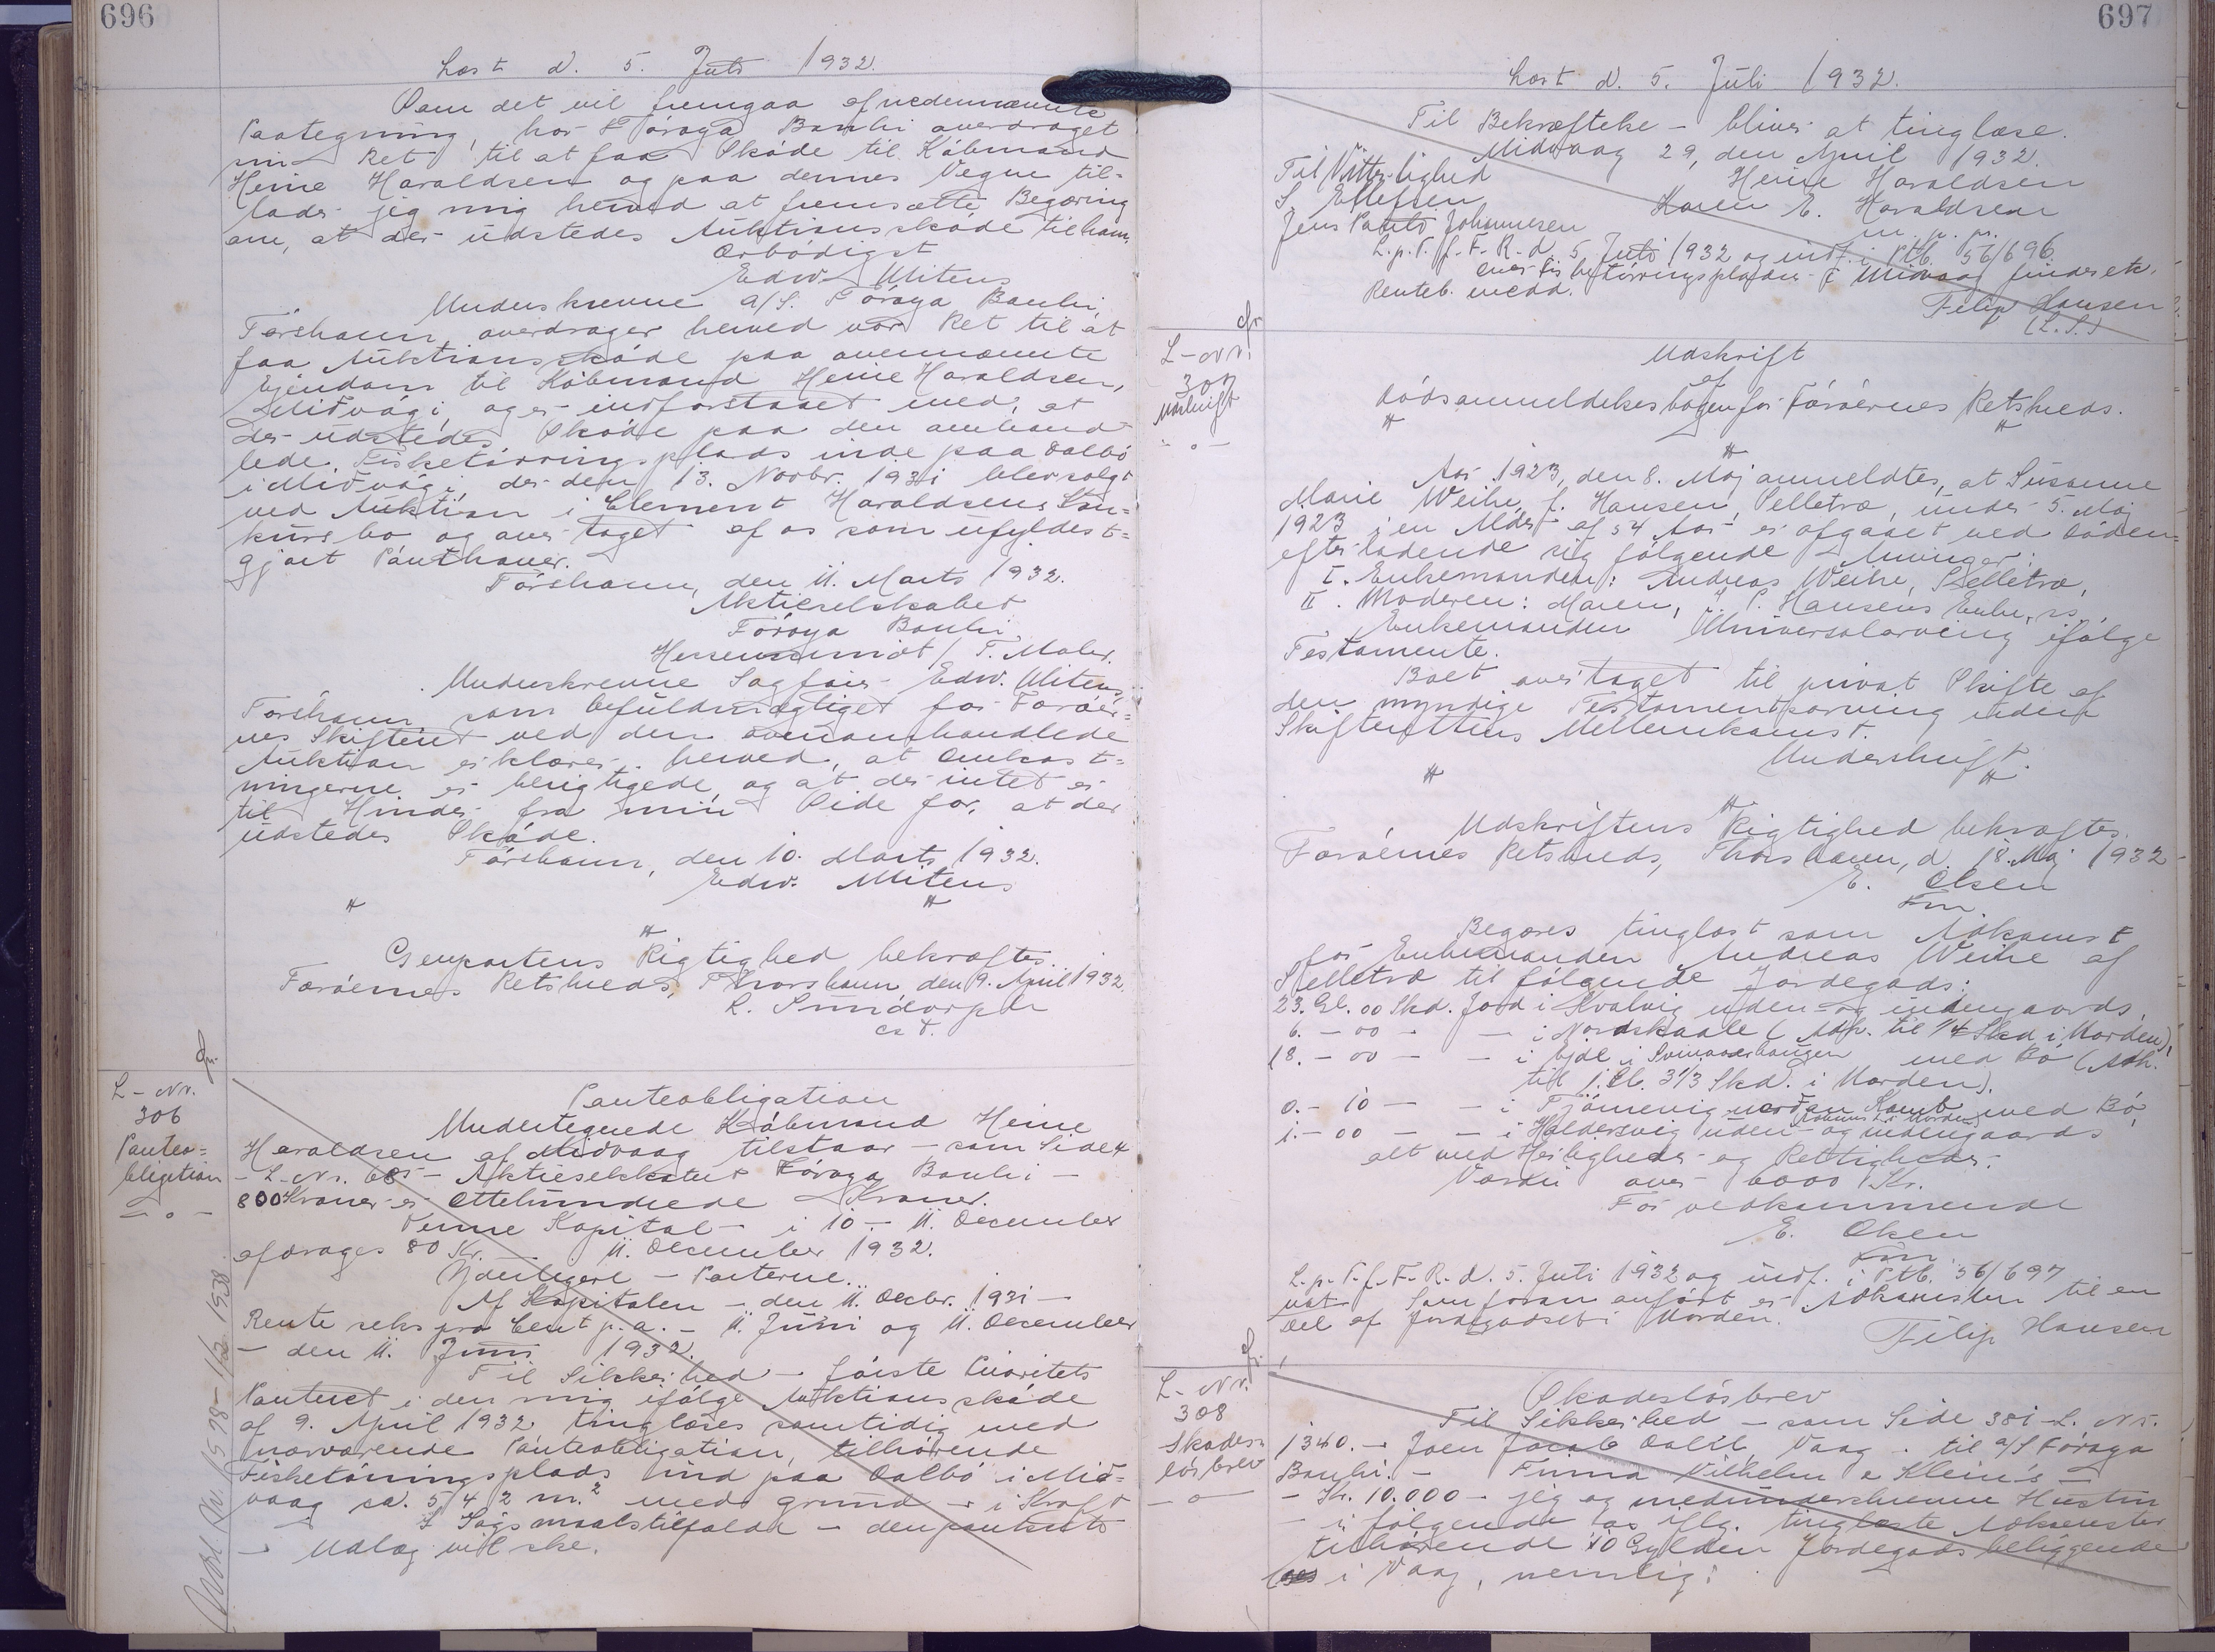 696
Læst d. 5. Juli 1932.
Som det vil fremgaa af nedennævnte
Paategning, har Føroya Banki overdraget
min Ret til at faa Skøde til Købmand
Heine Haraldsen og paa dennes Vegne til-
lader jeg mig herved at fremsætte Begæring
om, at der udstedes Auktionsskøde til ham.
Ærbødigst
Edw. Mitens
Underskrevne A/S. Føroya Banki,
Tórshavn, overdrager herved vor Ret til at
faa Auktionsskøde paa ovennævnte
Ejendom til Købmand Heine Haraldsen,
Miðvági, og er indforstaaet med, at
der udstedes Skøde paa den omhand-
lede Fisketørringsplads inde paa Dalbø
i Miðvági der den 13. Novbr. 1931 blev solgt
ved Auktion i Clement Haraldsens Kon-
kursbo og overtaget af os som ufyldest=
gjort Panthaver.
Tórshavn, den 11. Marts 1932.
Aktieselskabet
Føroya Banki
Heisenschmidt / T. Maler.
Underskrevne Sagfører Edw. Mitens,
Tórshavn som befuldmægtiget for Færøer=
nes Skifteret ved den ovenomhandlede
Auktion erklærer herved, at Omkost=
ningerne er berigtigede og at der intet er
til Hinder fra min Side for, at der
udstedes Skøde.
Tórshavn, den 10. Marts 1932.
Edw. Mitens
Genpartens Rigtighed bekræftes.
Færøernes Retskreds, Thorshavn den 9. April 1932.
R. Simdorph
cst.
cfr.
L-Nr.
306
Panteo=
bligation
- o -
Panteobligation
Undertegnede Købmand Heine
Haraldsen af Midvaag tilstaar - som Side 4
- L-Nr. 68 - Aktieselskabet Føroya Banki -
800 Kroner er Ottehundrede Kroner.
Denne Kapital - i 10 - 11. December
afdrages 80 Kr. - 11. December 1932.
Yderligere - Parterne.
Af Kapitalen - den 11. Decbr. 1931 -
Rente seks pro Cent p.a. - 11. Juni og 11. December
- den 11. Juni 1932.
Til Sikkerhed - første Prioritets
Panteret i den mig ifølge Auktionsskøde
af 9. April 1932 tinglæses samtidig med
nærværende Panteobligation, tilhørende
Fisketørringsplads ind paa Dalbø i Mid=
vaag ca. 542 m.² med grund - i Kraft
- I Søgsmaalstilfælde - den pantsatte
- Udlæg vil ske.
697
Læst d. 5. Juli 1932.
Til Bekræftelse - bliver at tinglæse.
Midvaag 29, den April 1932.
Til Vitterlighed
Heine Haraldsen
S. Ellefsen
Karen E. Haraldsen
Jens Pauli Johannesen
m. p. p.
L. p. T. f. F. R. d. 5. Juli 1932 og indf. i Ptb. 56/696.
Renteb. medd.
over fistørringspladser i Midvaag findes ek.
Filip Hansen
(L.S.)
cfr
L-Nr.
307
Udskrift
- o -
Udskrift
af
Dødsanmeldelsesbogen for Færøernes Retskreds.
Aar 1923, den 8. Maj anmeldtes, at Susanne
Marie Weihe, f. Hansen, Selletræ, under 5. Maj
1923 i en Alder af 54 Aar er afgaaet ved Døden=
efterladende sig følgende Arvinger:
I. Enkemanden: Andreas Weihe, Selletræ,
II. Moderen: Maren, J. P. Hansens Enke, rs,
Enkemanden Universalarving ifølge
Testamente.
Boet overtaget til privat Skifte af
den myndige Testamentsarving uden
Skifterettens Mellemkomst.
Underskrift.
Udskriftens Rigtighed bekræftes.
Færøernes Retskreds, Thorshavn, d. 18. Maj 1932
E. Olsen
Fm
Begæres tinglæst som Adkomst
for Enkemanden Andreas Weihe af
Selletræ til følgende Jordegods:
23. Gl. 00 Skd. Jord i Kvalvig uden- og indengaards,
6. - 00 - - i Nordskaale (Adk. til 1/4 Skd i Norden),
18. - 00 - - i Ejde i Svinaaerhaugen med Bø (Adk.
til 1 Gl. 3 1/3 Skd. i Norden).
0. - 10 - - i Tjørnevig norden Kamb med Bø,
1. - 00 - - i Haldersvig uden- og indengaards
alt med Herligheder og Rettigheder.
Værdi over 6000 Kr.
For vedkommende
E. Olsen
Fm.
L. p. T. f. F. R. d. 5. Juli 1932 og indf. i Ptb. 56/697
Som foran anført er Adkomsten til en
Del af Jordegodset i Norden.
Filip Hansen
cfr.
L-Nr.
308
Skades=
løsbrev
- o -
Skadesløsbrev
Til Sikkerhed - som Side 381 L. Nr.
1340. - Joen Jacob Dahl, Vaag - til A/S Føroya
Banki. - Firma Vilhelm e Klein's -
- Kr. 10.000 - jeg og medunderskrevne Hustru
- i følgende os iflg. tinglæste Adkomster
tilhørende 10 Gylden Jordegods beliggende
i Vaag, nemlig: